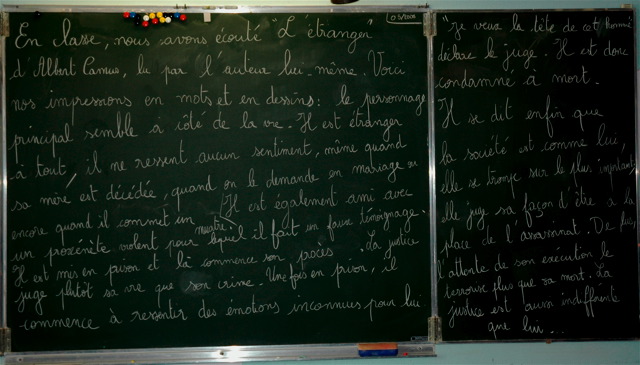 En classe, nous avons écouté "L'étranger"
d'Albert Camus, lu par l'auteur lui-même. Voici
nos impressions en mots et en dessins : le personnage
principal semble à côté de la vie. Il est étranger
à tout, il ne ressent aucun sentiment, même quand
sa mère est décédée, quand on le demande en mariage ou
encore quand il commet un meurtre. Il est également ami avec
un proxénète violent pour lequel il fait un faux témoignage.
Il est mis en prison et là commence son procès. La justice
juge plutôt sa vie que son crime. Une fois en prison, il
commence à ressentir des émotions inconnues pour lui.
"Je veux la tête de cet homme"
déclare le juge. Il est donc
condamné à mort.
Il se dit enfin que
la société est comme lui,
elle se trompe sur le plus important
elle juge sa façon d'être à la
place de l'assassinat. De plus,
l'attente de son exécution le
terrorise plus que sa mort. La
justice est aussi indifférente
que lui...